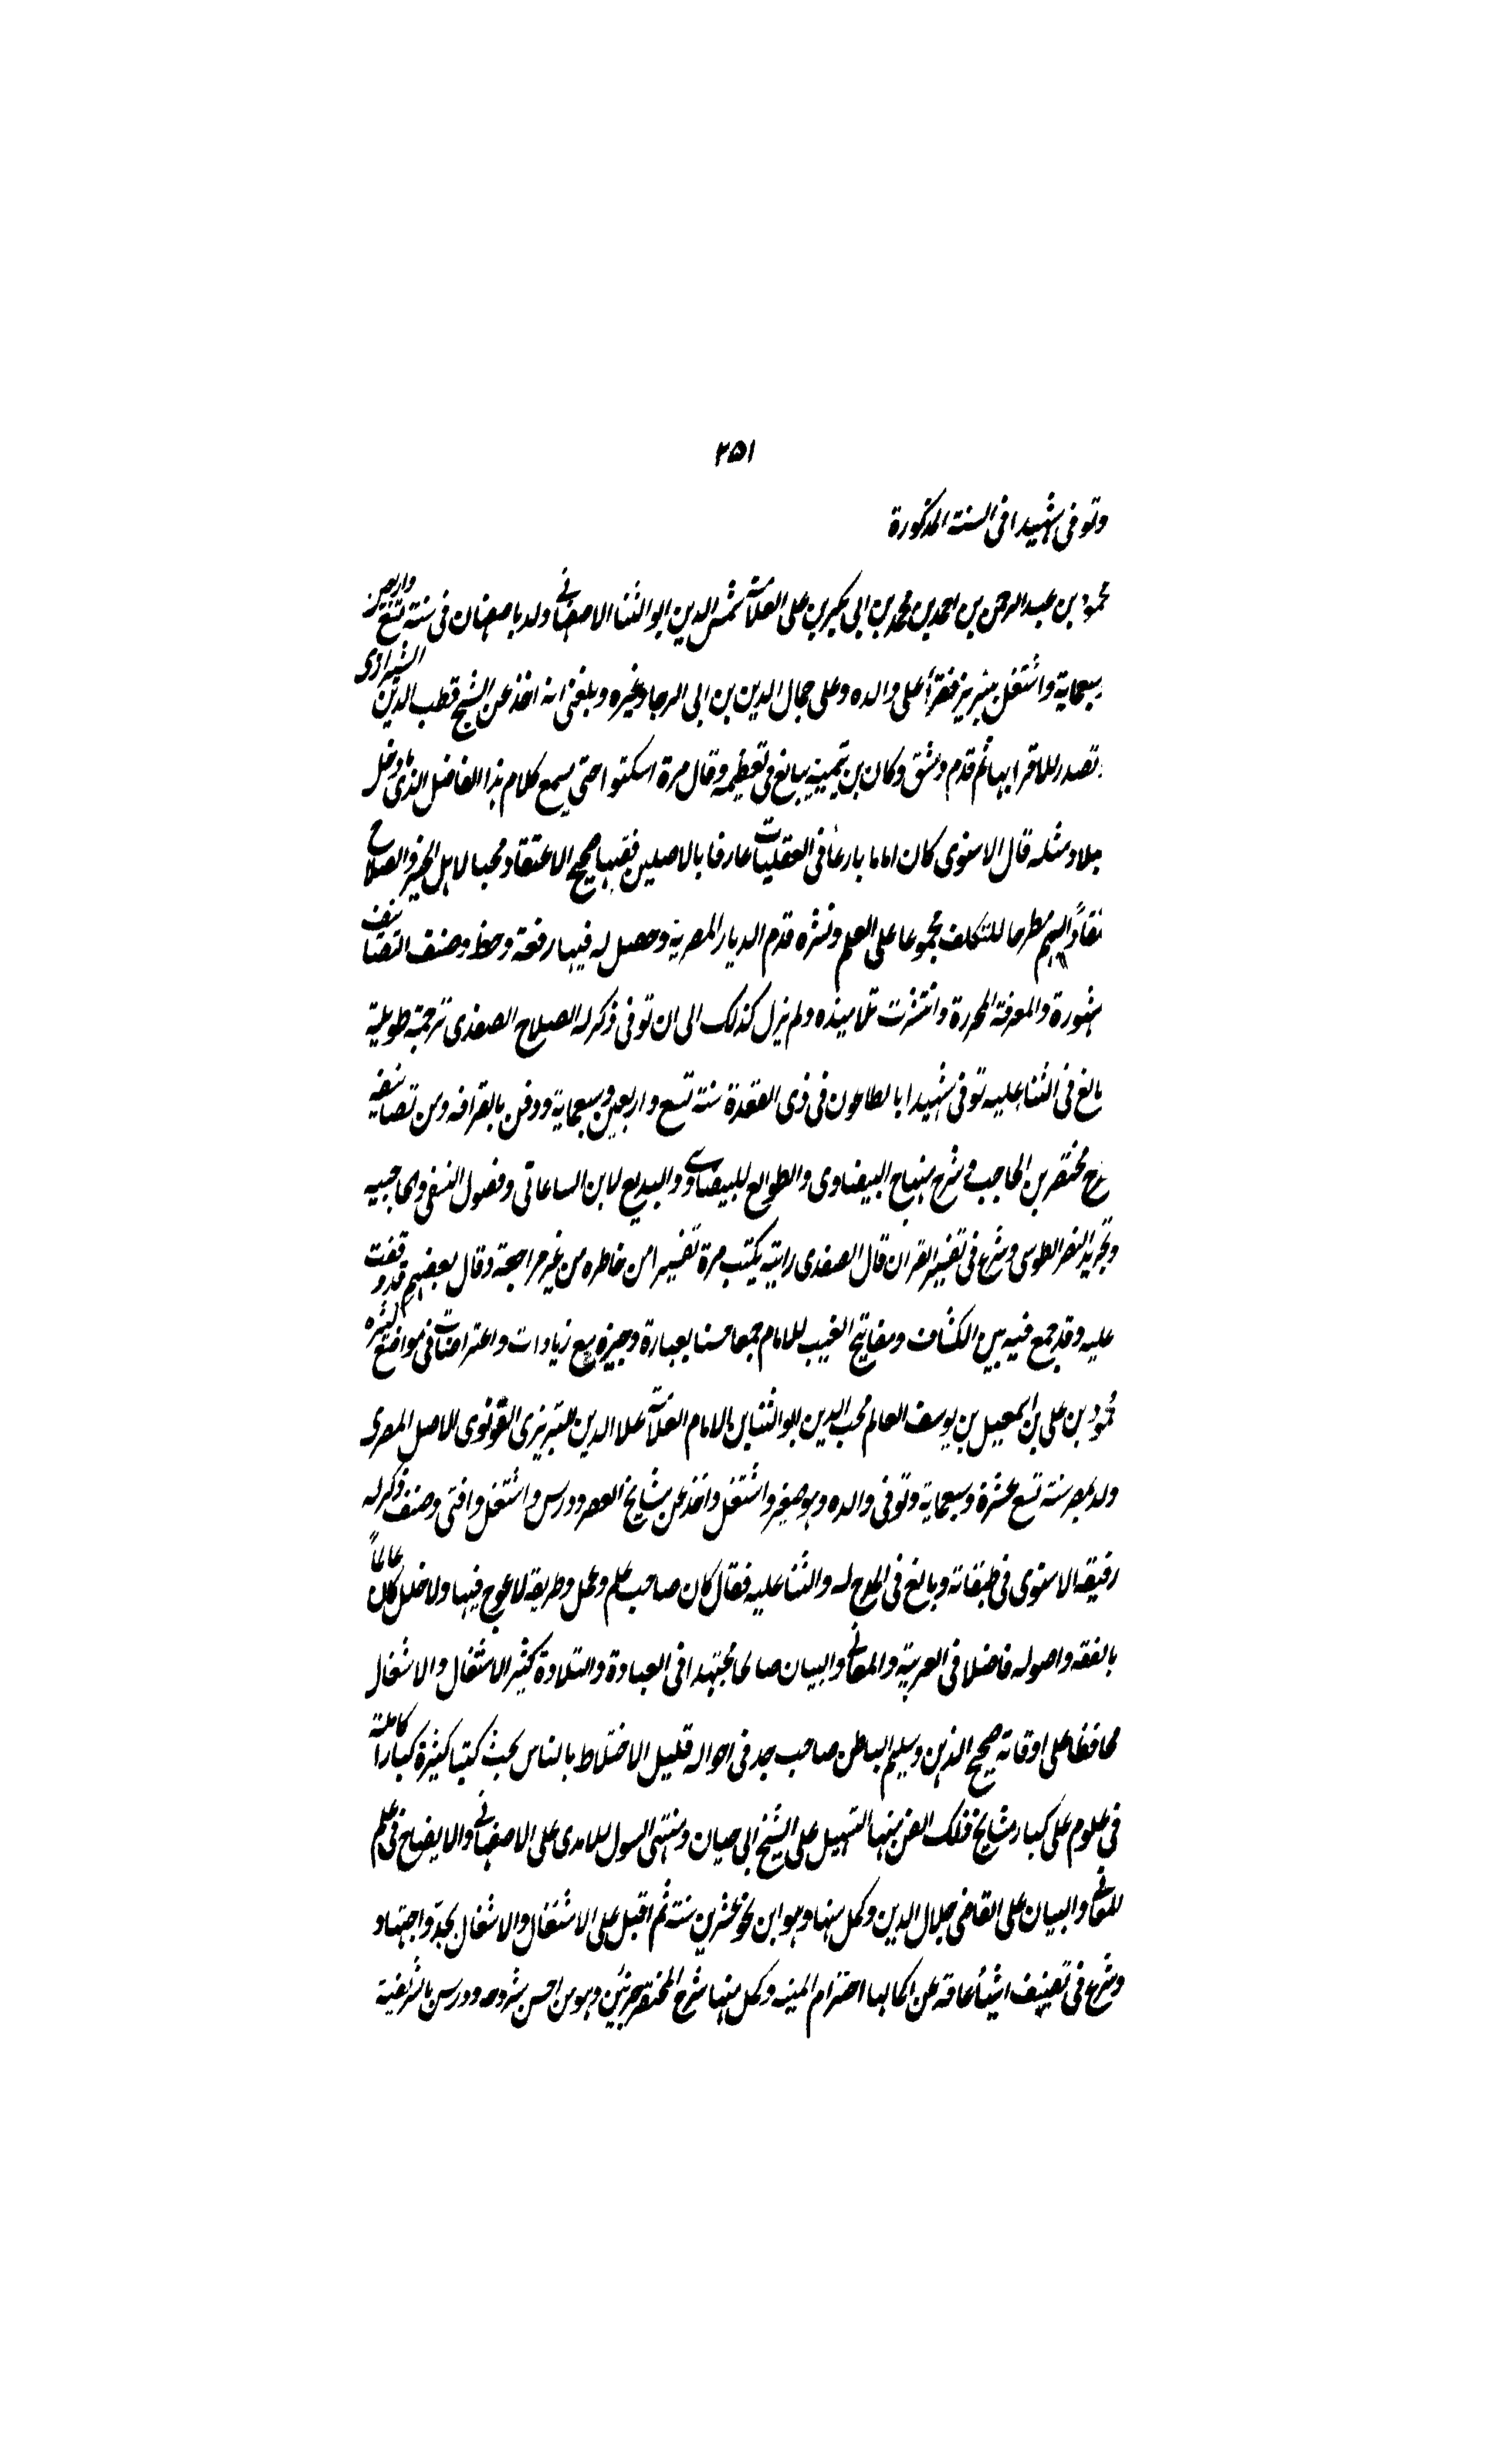 ٢٥١
وتوفى شهيدا فى السنة المذكورة
محمود بن عبد الرحمن بن احمد بن محمد بن ابى بكر بن على العلامة شمس الدين ابو الثنا الاصفهانى ولد باصفهان فى سنة تسع واربعين
سبعماية واشتغل بتبريز فقرأ على والده وعلى جمال الدين بن ابى الرجا وغيره وبلغنى انه اخذ عن الشيخ قطب الدين الشيرازى
تصدر للاقرا بها ثم قدم دمشق وكان بن تيمية يبالغ فى تعظيمه وقال مرة اسكتوا حتى يسمع كلام هذا الفاضل الذى ما دخل
بلاد مثله قال الاسنوى كان اماما بارعأ فى العقليات عارفا بالاصلين فقيها صحيح الاعتقاد محبا لاهل الخير والصلاح
نقاداً اليهم مطرحا للتكلف مجموعا على العلم ونشره قدم الديار المصرية وحصل له فيها رفعة وحظ وصنف التصانيف
شهورة والمعرفة المحررة وانتشرت تلاميذه ولم يزل كذلك الى ان توفى ذكر له الصلاح الصفدى ترجمة طويلة
بالغ فى الثنا عليه توفى شهيدا بالطاعون فى ذى القعدة سنة تسع واربعين وسبعماية ودفن بالقرافه ومن تصانيفه
رح مختصر بن الحاجب وشرح منهاج البيضاوى والطوالع للبيضاوى والبديع لابن الساعاتى وفصول النسفى والحاجبيه
وتجريد النصر الطوسى وشرع فى تفسير القران قال الصفدى رايته يكتب مرة تفسيرا من خاطره من غير مراجعة وقال بعضهم قد وقفت
عليه وقد جمع فيه بين الكشاف ومفاتيح الغيب للامام جمعا حسنا بعبارة وجيزه مع زيادات واعتراضات فى مواضع كثيره
محمود بن على بن اسمعيل بن يوسف العالم محب الدين ابو الثنا بن الامام العلامة علا الدين التبريزى القونوى الاصل المصرى
ولد بمصر سنة تسع عشرة وسبعماية وتوفى والده وهو صغير واشتغل واخذ عن مشايخ العصر ودرس واشتغل وافتى وصنف ذكر له
رفيقه الاسنوى فى طبقاته وبالغ فى المدح له والثنا عليه فقال كان صاحب علم وعمل وطريقه لا عوج فيها ولا خلل كان عالماً
بالفقه واصوله فاضلا فى العربية والمعانى والبيان صالحا مجتهدا فى العبادة والتلاوة كثير الاشتغال والاشغال
محافظا على اوقاته صحيح الذهن وسليم الباطن صاحب جد فى احواله قليل الاختلاط بالناس بحث كتبا كثيرة كبارا كاملة
فى علوم على كبار مشايخ ذلك الفن منها التسهيل على الشيخ ابى حيان ومنتهى السول للامدى على الاصفهانى والايضاح فى علم
المعانى والبيان على القاضى جلال الدين وكمل منها وهو ابن نحو عشرين سنة ثم اقبل على الاشتغال والاشغال بجد واجتهاد
وشرع فى تصنيف اشيأ عاقه عن اكمالها احترام المنيه وكمل منها شرح المختصر جزئين وهو من احسن شروحه ودرس بالشريفية